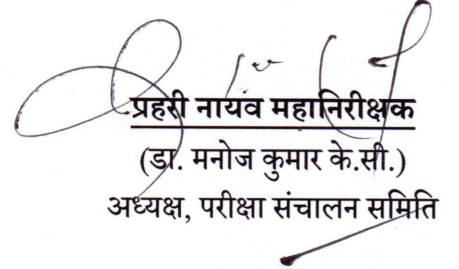 प्रहरी नायव महानिरीक्षक
(डा. मनोज कुमार के.सी.)
अध्यक्ष, परीक्षा संचालन समिति